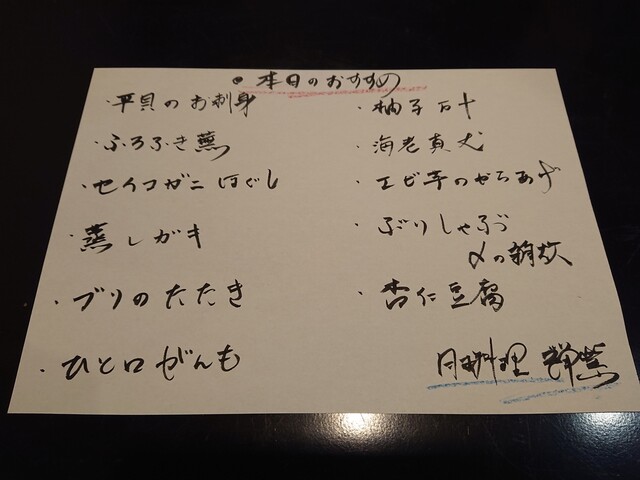 • 本日のおすすめ
・平貝のお刺身
・ふろふき蕪
・セイコガニほぐし
・蒸しガキ
・ブリのたたき
・ひと口がんも
・柚子万十
・海老真丈
・エビ芋のからあげ
・ぶりしゃぶ
〆の雑炊
・杏仁豆腐
料理